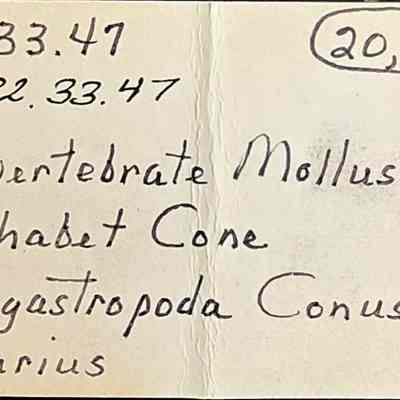 33.47 20,
22.33.47
vertebrate Mollus
habet Cone
gastropoda Conus
arius